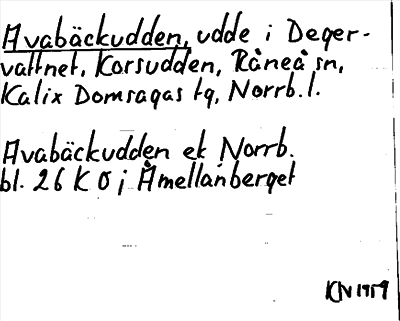 Avabäckudden, udde i Deger-
vattnet, Korsudden, Råneå sn,
Kalix Domsagas tg, Norrb. l.
Avabäckudden ek Norrb.
bl. 26 K ö j Åmellanberget
KN 1959